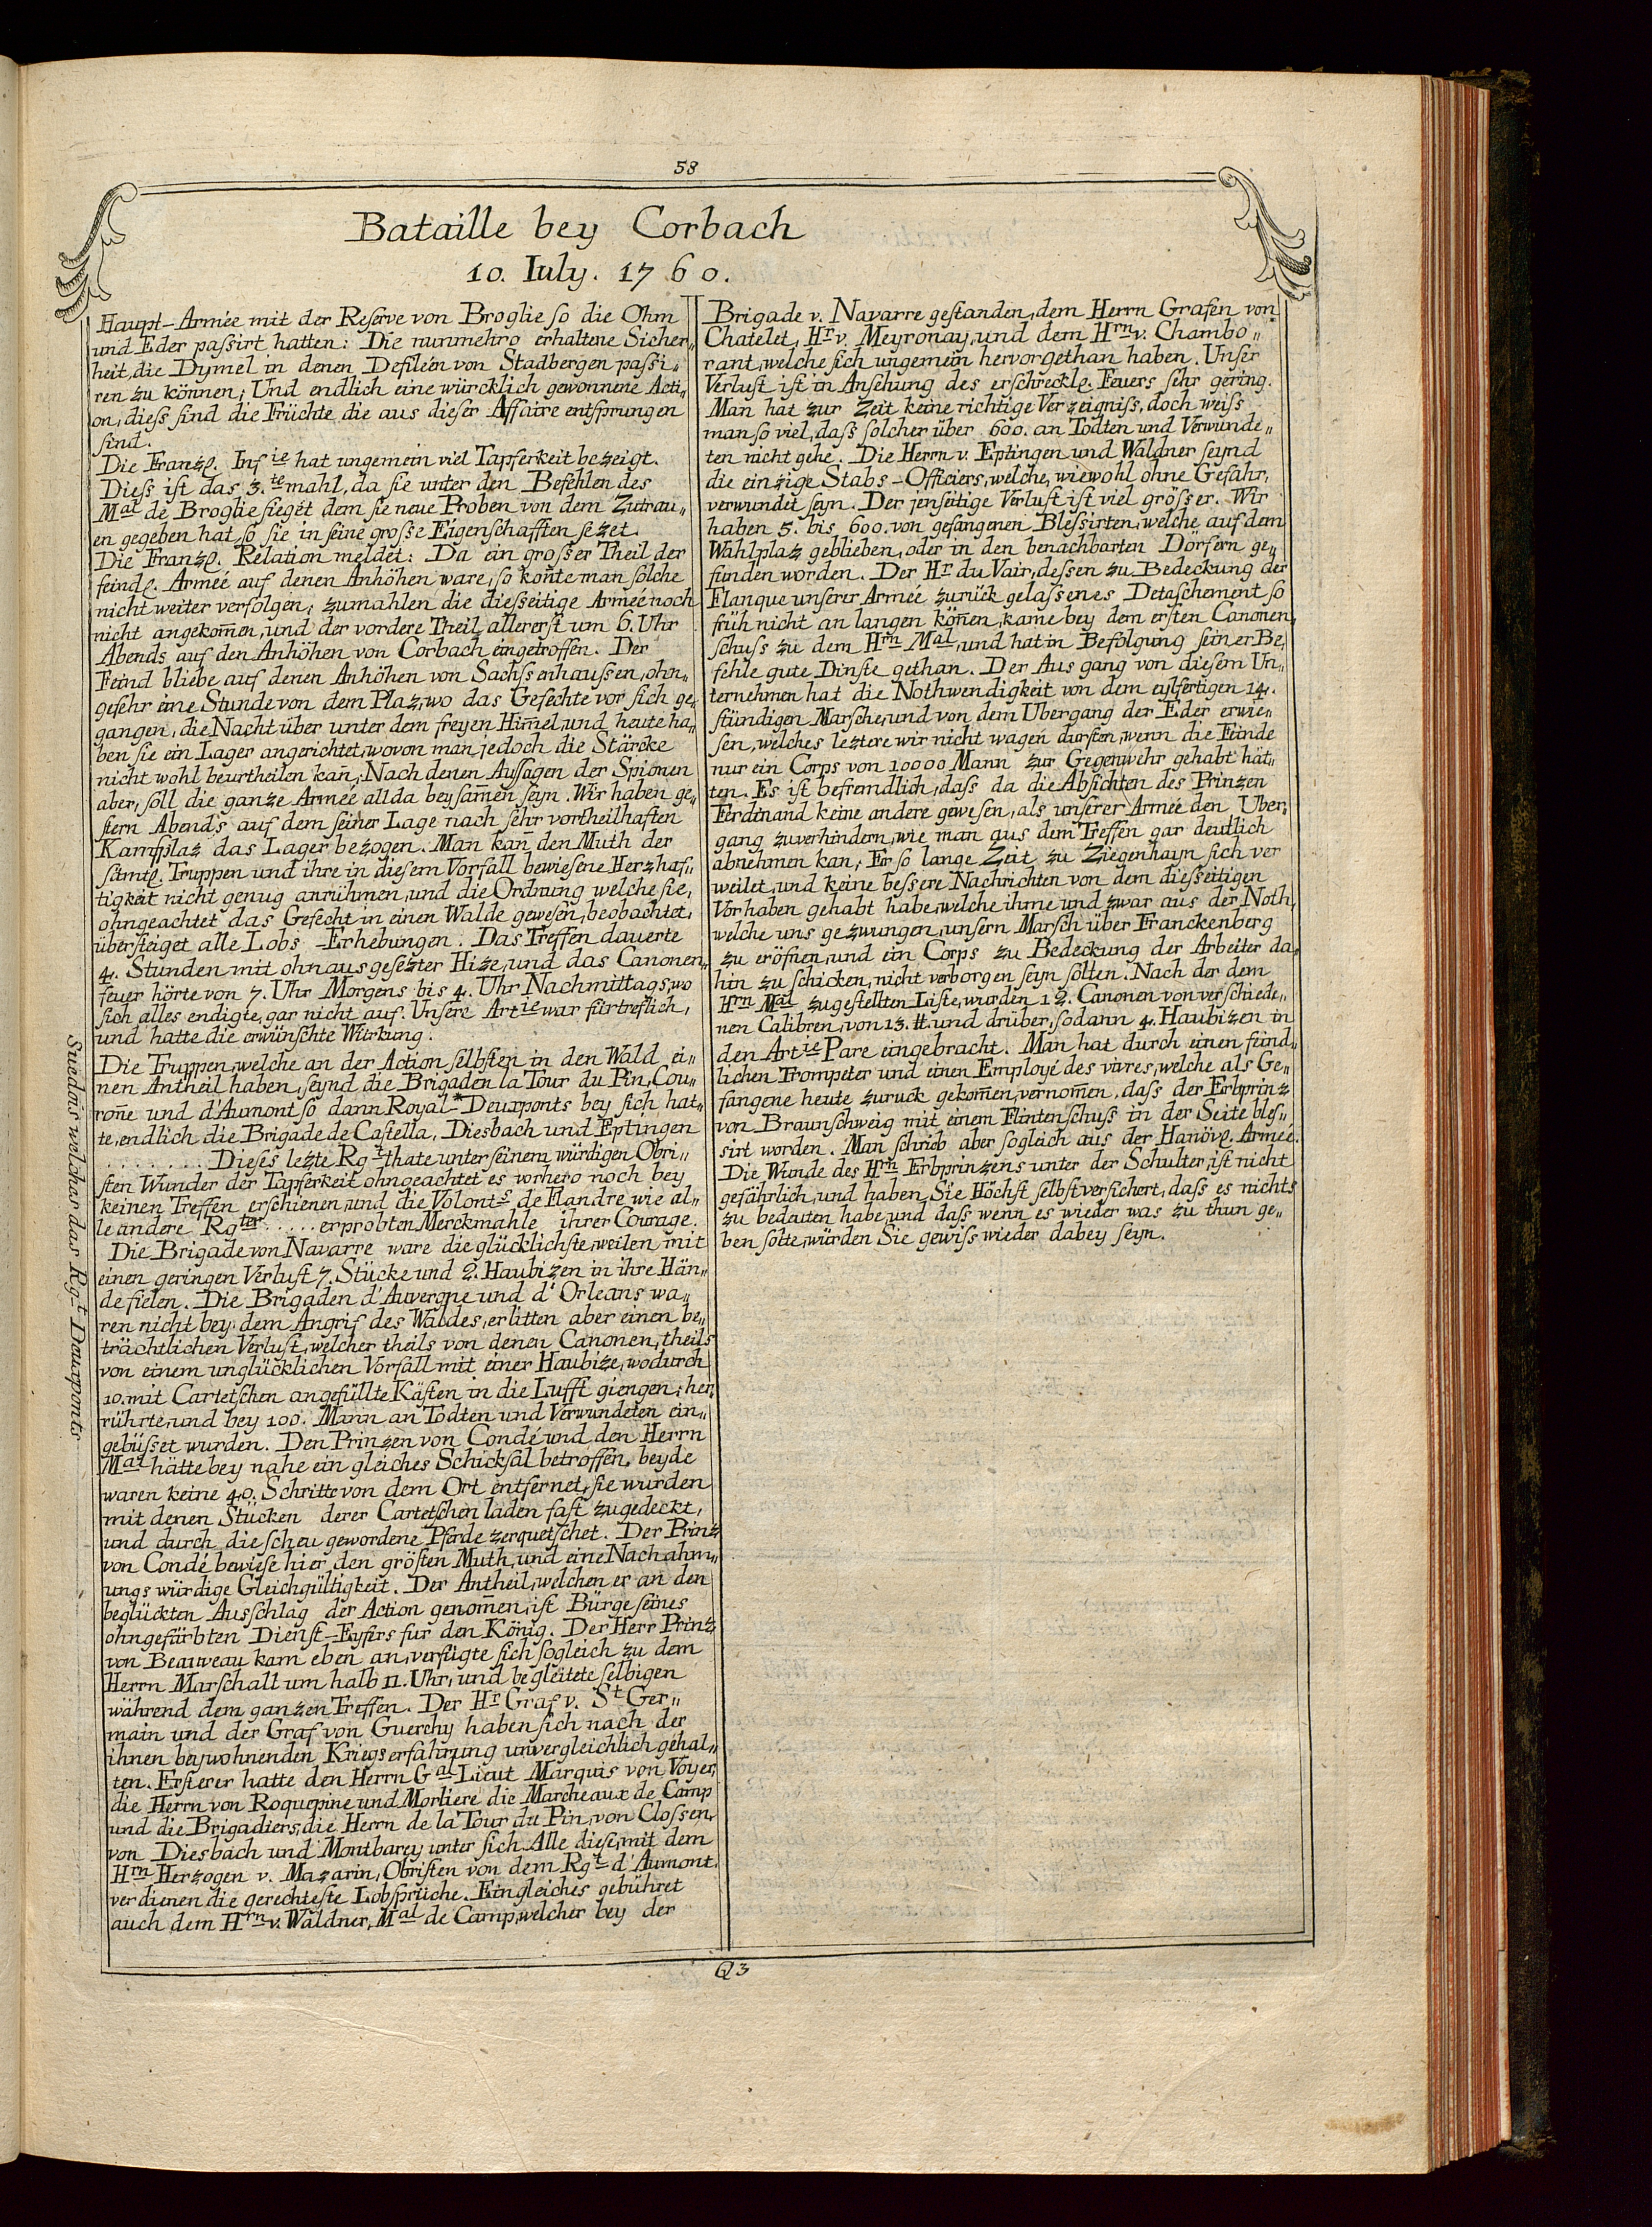 58
Bataille bey Corbach
10. Iuly. 1760.
Haupt-Armée mit der Reſerve von Broglie ſo die Ohm
und Eder paſsirt hatten: Die nunmehro erhaltene Sicher„
heit, die Dymel in denen Defiléen von Stadbergen paſsi„
ren zu können; Und endlich eine würcklich gewonnene Acti„
on, dieſs ſind die Früchte die aus dieſer Affaire entſprungen
ſind.
Die Franzſ. Infie hat ungemein viel Tapferkeit bezeigt.
Dieſs iſt das 3.te mahl, da ſie unter den Befehlen des
Mal de Broglie ſieget dem ſie neue Proben von dem Zutrau„
en gegeben hat, ſo ſie in ſeine groſse Eigenſchafften ſezet.
Die Franzſ. Relation meldet: Da ein groſser Theil der
feindl. Armée auf denen Anhöhen ware, ſo kon̄te man ſolche
nicht weiter verfolgen, zumahlen die dieſseitige Armée noch
nicht angekom̄en, und der vordere Theil allererſt um 6. Uhr
Abends auf den Anhöhen von Corbach eingetroffen. Der
Feind bliebe auf denen Anhöhen von Sachſsenhauſsen, ohn„
gefehr eine Stunde von dem Plaz, wo das Gefechte vor ſich ge„
gangen, die Nacht über unter dem freyen Him̄el, und heute ha„
ben ſie ein Lager angerichtet, wovon man jedoch die Stärcke
nicht wohl beurtheilen kan̄; Nach denen Auſsagen der Spionen
aber, ſoll die ganze Armée allda beyſam̄en ſeyn. Wir haben ge„
ſtern Abends auf dem ſeiner Lage nach ſehr vortheilhaften
Kampfplaz das Lager bezogen. Man kan̄ den Muth der
ſämtl. Truppen und ihre in dieſem Vorfall bewieſene Herzhaf„
tigkeit nicht genug anrühmen, und die Ordnung welche ſie,
ohngeachtet das Gefecht in einen Walde geweſen, beobachtet,
überſteiget alle Lobs-Erhebungen. Das Treffen dauerte
4. Stunden mit ohnausgeſezter Hize, und das Canonen„
feuer hörte von 7. Uhr Morgens bis 4. Uhr Nachmittags, wo
ſich alles endigte, gar nicht auf. Unſere Artie war fürtreflich,
und hatte die erwünſchte Würkung.
Die Truppen, welche an der Action ſelbſten in den Wald ei„
nen Antheil haben, ſeynd die Brigaden la Tour du Pin, Cou„
ron̄e und d'Aumont ſo dann Royal-*Deuxponts bey ſich hat„
te, endlich die Brigade de Caſtella, Diesbach und Eptingen
. . . . . . . . Dieſes lezte Rgt thate unter ſeinem würdigen Obri„
ſten Wunder der Tapferkeit ohngeachtet es vorhero noch bey
keinen Treffen erſchienen, und die Volonts de Flandre wie al„
le andere Rgter . . . . . erprobten Merckmahle ihrer Courage.
Die Brigade von Navarre ware die glücklichſte, weilen mit
einen geringen Verluſt 7. Stücke und 2. Haubizen in ihre Hän„
de fielen. Die Brigaden d'Auvergne und d'Orleans wa„
ren nicht bey dem Angrif des Waldes, erlitten aber einen be„
trächtlichen Verluſt, welcher theils von denen Canonen, theils
von einem unglücklichen Vorfall mit einer Haubize, wodurch
10. mit Cartetſchen angefüllte Käſten in die Lufft giengen, her„
rührte, und bey 100. Mann an Todten und Verwundeten ein„
gebüſset wurden. Den Prinzen von Condé und den Herrn
Mal hätte bey nahe ein gleiches Schickſal betroffen, beyde
waren keine 40. Schritte von dem Ort entfernet, ſie wurden
mit denen Stücken derer Cartetſchen laden faſt zugedeckt,
und durch die ſcheu gewordene Pferde zerquetſchet. Der Prinz
von Condé bewieſe hier den gröſten Muth, und eine Nachahm„
ungs würdige Gleichgültigkeit. Der Antheil, welchen er an den
beglückten Ausſchlag der Action genom̄en, iſt Bürge ſeines
ohngefärbten Dienſt-Eyfers fur den König. Der Herr Prinz
von Beauveau kam eben an, verfügte ſich ſogleich zu dem
Herrn Marſchall um halb 11. Uhr, und begleitete ſelbigen
während dem ganzen Treffen. Der Hr Graf v. St Ger„
main und der Graf von Guerchy haben ſich nach der
ihnen beywohnenden Kriegserfahrung unvergleichlich gehal„
ten. Erſterer hatte den Herrn Gal Lieut Marquis von Voyer,
die Herrn von Roquepine und Morliere die Marcheaux de Camp
und die Brigadiers, die Herrn de la Tour du Pin, von Cloſsen,
von Diesbach und Montbarey unter ſich. Alle dieſe, mit dem
Hrn Herzogen v. Mazarin, Obriſten von dem Rgt d'Aumont.
verdienen die gerechteſte Lobſprüche. Ein gleiches gebühret
auch dem Hrn v. Waldner, Mal de Camp, welcher bey der
Suedois welches das Rgt Deuxponts
Brigade v. Navarre geſtanden, dem Herrn Grafen von
Chatelet, Hr v. Meyronay, und dem Hrn v. Chambo„
rant, welche ſich ungemein hervorgethan haben. Unſer
Verluſt iſt in Anſehung des erſchreckl. Feuers ſehr gering.
Man hat zur Zeit keine richtige Verzeigniſs, doch weiſs
man ſo viel, daſs ſolcher über 600. an Todten und Verwunde„
ten nicht gehe. Die Herrn v. Eptingen und Waldner ſeynd
die einzige Stabs-Officiers, welche, wiewohl ohne Gefahr,
verwundet ſeyn. Der jenſeitige Verluſt iſt viel gröſser. Wir
haben 5. bis 600. von gefangenen Bleſsirten, welche auf dem
Wahlplaz geblieben, oder in den benachbarten Dörfern ge„
funden worden. Der Hr du Vair, deſsen zu Bedeckung der
Flanque unſerer Armée zurück gelaſsenes Detaſchement ſo
früh nicht an langen kön̄en, kame bey dem erſten Canonen„
ſchuſs zu dem Hrn Mal, und hat in Befolgung ſeiner Be„
fehle gute Dinſte gethan. Der Ausgang von dieſem Un„
ternehmen hat die Nothwendigkeit von dem eylfertigen 14.
ſtündigen Marſche, und von dem Ubergang der Eder erwie„
ſen, welches leztere wir nicht wagen durften, wenn die Feinde
nur ein Corps von 10000 Mann zur Gegenwehr gehabt hät„
ten. Es iſt befremdlich, daſs da die Abſichten des Prinzen
Ferdinand keine andere geweſen, als unſerer Armée den Uber„
gang zuverhindern, wie man aus dem Treffen gar deutlich
abnehmen kan, Er ſo lange Zeit zu Ziegenhayn ſich ver
weilet, und keine beſsere Nachrichten von dem dieſseitigen
Vorhaben gehabt habe, welche ihme und zwar aus der Noth,
welche uns gezwungen, unſern Marſch über Franckenberg
zu eröfnen, und ein Corps zu Bedeckung der Arbeiter da„
hin zu ſchicken, nicht verborgen ſeyn ſolten. Nach der dem
Hrn Mal zugeſtellten Liſte, wurden 12. Canonen von verſchiede„
nen Calibren, von 13. ℔. und drüber, ſodann 4. Haubizen in
den Artie Parc eingebracht. Man hat durch einen feind„
lichen Trompeter und einen Employé des vivres, welche als Ge„
fangene heute zuruck gekom̄en, vernom̄en, daſs der Erbprinz
von Braunſchweig mit einem Flintenſchuſs in der Seite bleſ„
sirt worden. Man ſchrieb aber ſogleich aus der Hanövſ. Armée.
Die Wunde des Hrn Erbprinzens unter der Schulter, iſt nicht
gefährlich, und haben Sie Höchſt ſelbſt verſichert, daſs es nichts
zu bedeuten habe, und daſs wenn es wieder was zu thun ge„
ben ſolte, würden Sie gewiſs wieder dabey ſeyn.
Q3